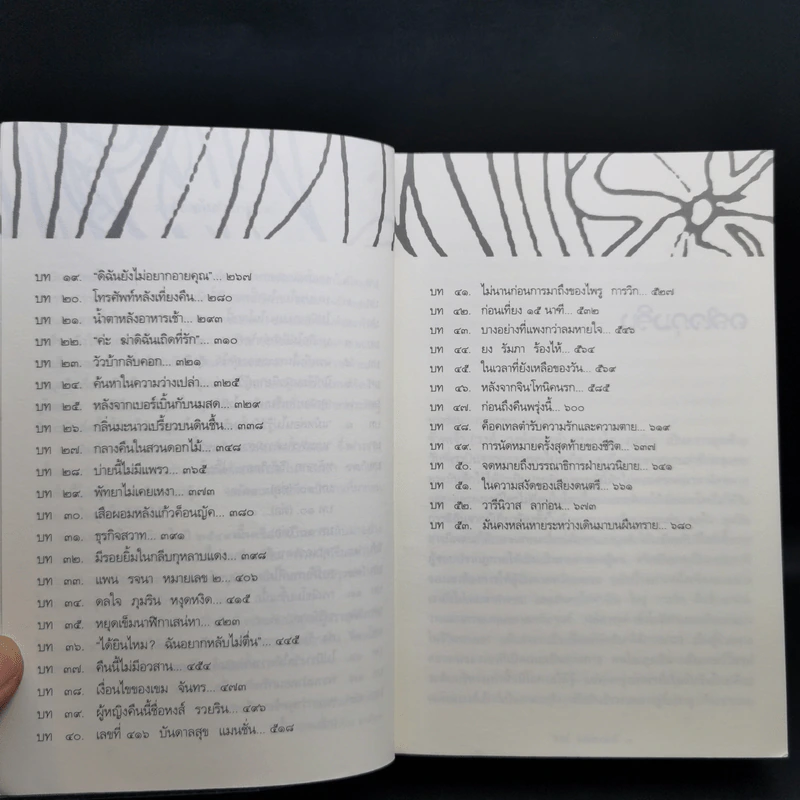 บท ๑๙. "ดิฉันยังไม่อยากอายคุณ"... ๒๖๗
บท ๒๐. โทรศัพท์หลังเที่ยงคืน... ๒๘๐
บท ๒๑. น้ำตาหลังอาหารเช้า... ๒๙๒
บท ๒๒. "ค่ะ ฆ่าดิฉันเถิดที่รัก"... ๓๑๐
บท ๒๓. วัวบ้ากลับคอก... ๓๒๑
บท ๒๔. ค้นหาในความว่างเปล่า... ๓๒๕
บท ๒๕. หลังจากเบอร์เบิ้นกับนมสด... ๓๒๙
บท ๒๖. กลิ่นมะนาวเปรี้ยวบนดินชื้น... ๓๓๗
บท ๒๗. กลางคืนในสวนดอกไม้... ๓๔๘
บท ๒๘. บ่ายนี้ไม่มีแพรว... ๓๖๕
บท ๒๙. พัทยาไม่เคยเหงา... ๓๗๓
บท ๓๐. เสือผอมหลังแก้วค็อนญัค... ๓๘๐
บท ๓๑. ธุรกิจสวาท... ๓๙๑
บท ๓๒. มีรอยยิ้มในกลีบกุหลาบแดง... ๓๙๘
บท ๓๓. แพน รจนา หมายเลข ๒... ๔๐๖
บท ๓๔. ดลใจ ภุมริน หงุดหงิด... ๔๑๕
บท ๓๕. หยุดเข็มนาฬิกาเสน่หา... ๔๒๓
บท ๓๖. "ได้ยินไหม? ฉันอยากหลับไม่ตื่น"... ๔๔๕
บท ๓๗. คืนนี้ไม่มีอวสาน... ๔๕๔
บท ๓๘. เงื่อนไขของเขม จันทร... ๔๗๓
บท ๓๙. ผู้หญิงคืนนี้ชื่อหงส์ รวยริน... ๔๙๖
บท ๔๐. เลขที่ ๔๑๖ บันดาลสุข แมนชั่น... ๕๑๘
บท ๔๑. ไม่นานก่อนการมาถึงของไพรู การวิก... ๕๒๗
บท ๔๒. ก่อนเที่ยง ๑๕ นาที... ๕๓๒
บท ๔๓. บางอย่างที่แพงกว่าลมหายใจ... ๕๔๖
บท ๔๔. ยง รัมภา ร้องไห้... ๕๖๔
บท ๔๕. ในเวลาที่ยังเหลือของวัน... ๕๖๙
บท ๔๖. หลังจากจินโทนิคนรก... ๕๘๕
บท ๔๗. ก่อนถึงคืนพรุ่งนี้... ๖๐๐
บท ๔๘. ค็อคเทลตำรับความรักและความตาย... ๖๑๙
บท ๔๙. การนัดหมายครั้งสุดท้ายของชีวิต... ๖๓๗
บท ๕๐. จดหมายถึงบรรณาธิการฝ่ายนวนิยาย... ๖๔๑
บท ๕๑. ในความสงัดของเสียงดนตรี... ๖๖๑
บท ๕๒. วารีนิวาส ลาก่อน... ๖๗๓
บท ๕๓. มันคงหล่นหายระหว่างเดินมาบนผืนทราย... ๖๘๐